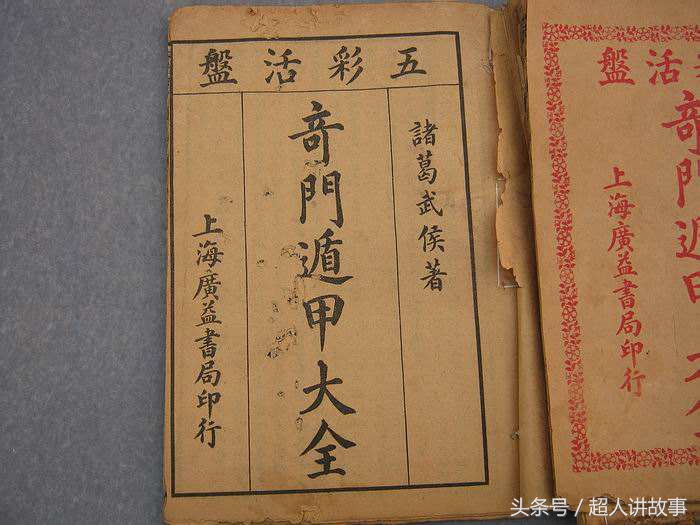 五彩活盤
諸葛武侯著
竒門遁甲大全
上海廣益書局印行
活盤
竒門遁甲大全
上海廣益書局印行
头条号 / 超人讲故事